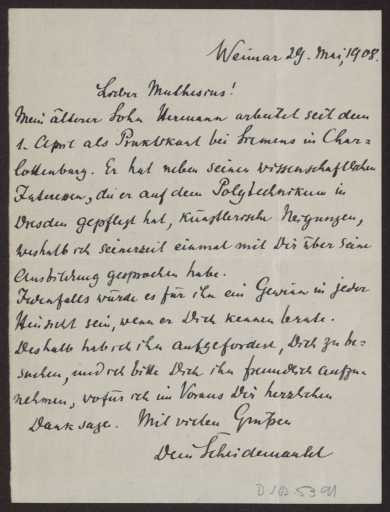 Weimar 29. Mai, 1908.
Lieber Muthesius!
Mein älterer Sohn Hermann arbeitet seit dem
1. April als Praktikant bei Siemens in Char=
lottenburg. Er hat neben seinen wissenschaftlichen
Interessen, die er auf dem Polytechnikum in
Dresden gepflegt hat, künstlerische Neigungen,
weshalb ich seinerzeit einmal mit Dir über seine
Ausbildung gesprochen habe.
Jedenfalls würde es für ihn ein Gewinn in jeder
Hinsicht sein, wenn er Dich kennen lernte.
Deshalb hab ich ihn aufgefordert, Dich zu be=
suchen, und ich bitte Dich ihn freundlich aufzu
nehmen, wofür ich im Voraus Dir herzlichen
Dank sage. Mit vielen Grüßen
Dein Scheidemantel
D 102-5391